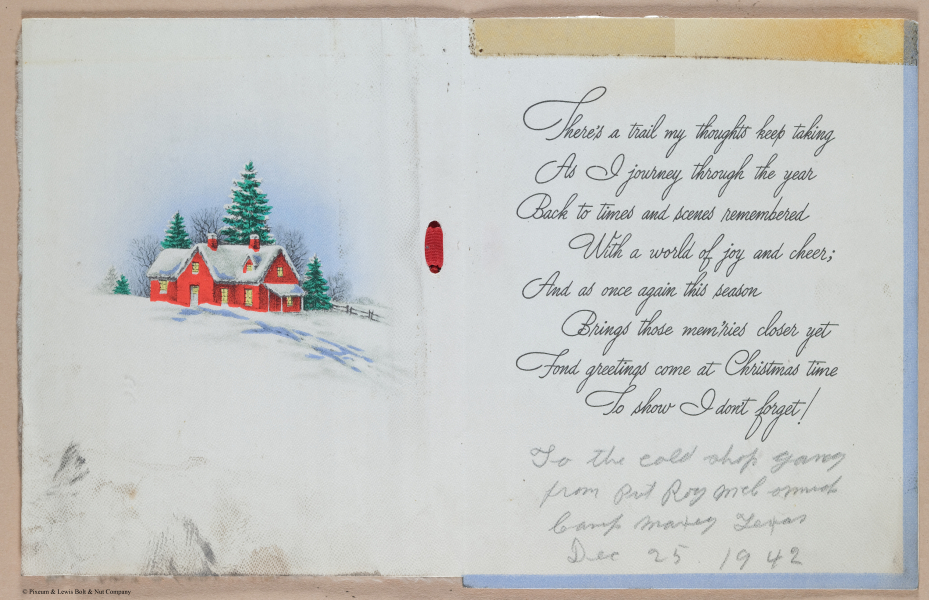 There's a trail my thoughts keep taking
As I journey through the year
Back to times and scenes remembered
With a world of joy and cheer;
And as once again this season
Brings those mem'ries closer yet
Fond greetings come at Christmas time
To show I don't forget!
To the cold shop gang
from Pvt Roy
Camp Maxey Texas
Dec 25 1942
© Pixeum & Lewis Bolt & Nut Company